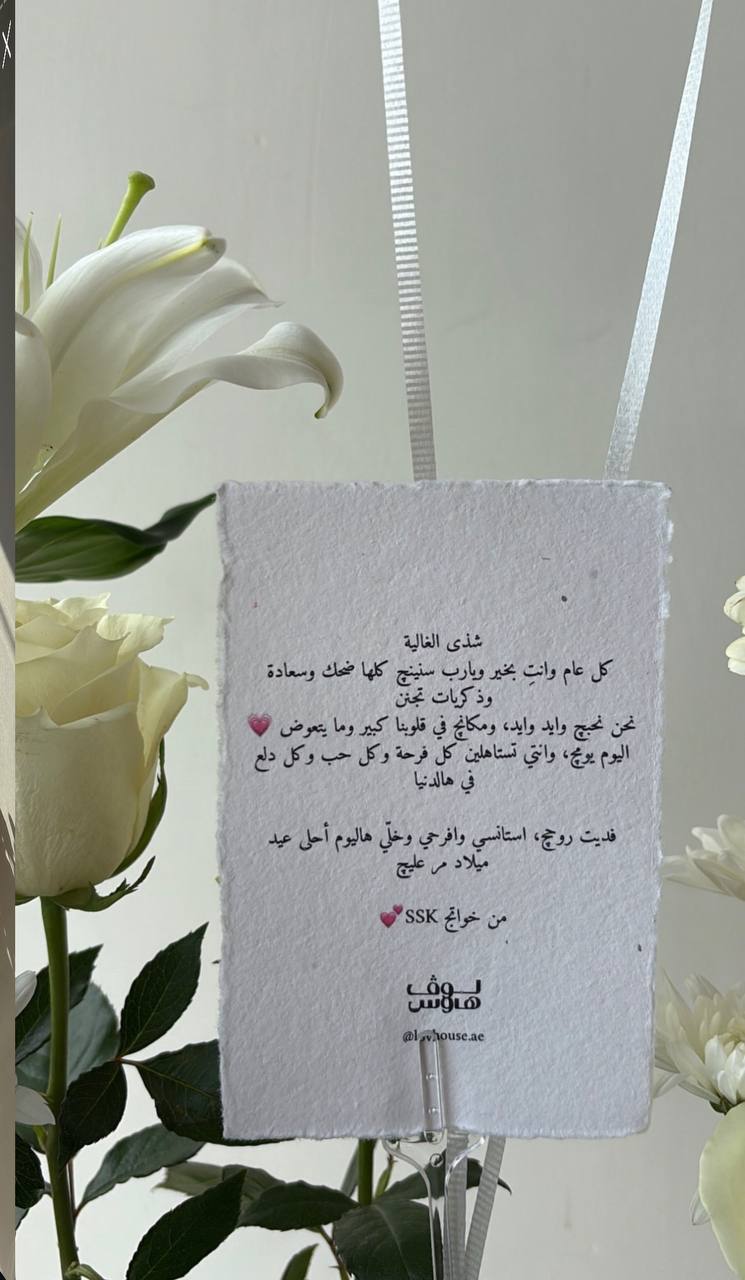 شذى الغالية
كل عام وانتِ بخير ويارب سنينچ كلها ضحك وسعادة
وذكريات تجنن
نحن نحبچ وايد وايد، ومكانچ في قلوبنا كبير وما يتعوض 💗
اليوم يومچ، وانتي تستاهلين كل فرحة وكل حب وكل دلع
في هالدنيا
فديت روحچ، استانسي وافرحي وخلّي هاليوم أحلى عيد
ميلاد مر عليچ
من خواتچ SSK 💕
لوڤ
هاوس
@lovhouse.ae